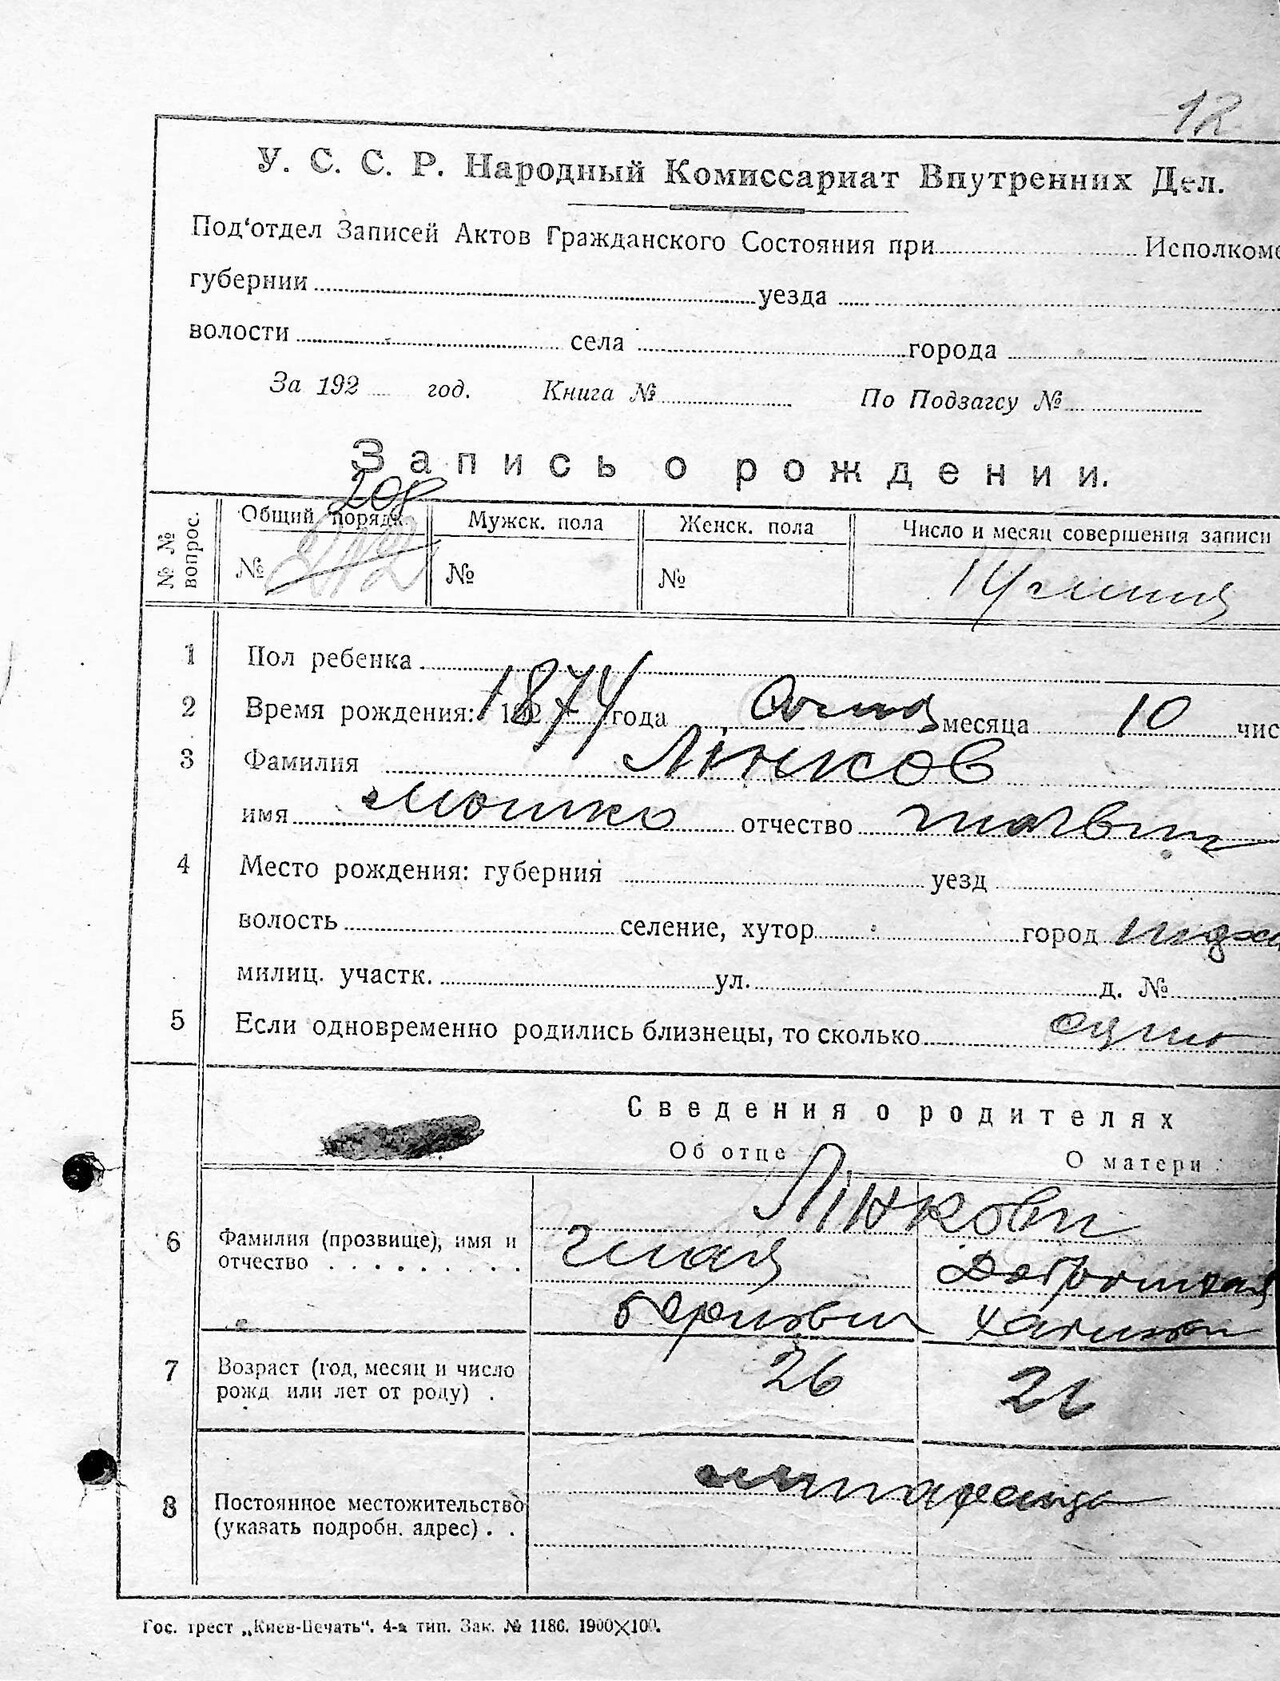 12
У. С. С. Р. Народный Комиссариат Внутренних Дел.
Под'отдел Записей Актов Гражданского Состояния при Исполкомо
губернии уезда
волости села города
За 192 год. Книга № По Подзагсу №
Запись о рождении.
208
№ № вопрос. Общий порядк. Мужск. пола Женск. пола Число и месяц совершения записи
№ 212 № № 14
1 Пол ребенка
2 Время рождения: 192 1874 года месяца 10 чис
3 Фамилия Лінков
имя Мошко отчество
4 Место рождения: губерния уезд
волость селение, хутор город
милиц. участк. ул. д. №
5 Если одновременно родились близнецы, то сколько одно
Сведения о родителях
Об отце О матери
Лінкови
6 Фамилия (прозвище), имя и
отчество
7 Возраст (год, месяц и число
рожд или лет от роду) . 26 21
8 Постоянное местожительство
(указать подробн. адрес) . .
Гос. трест „Киев-Печать". 4-я тип. Зак. № 1186. 1900×100.